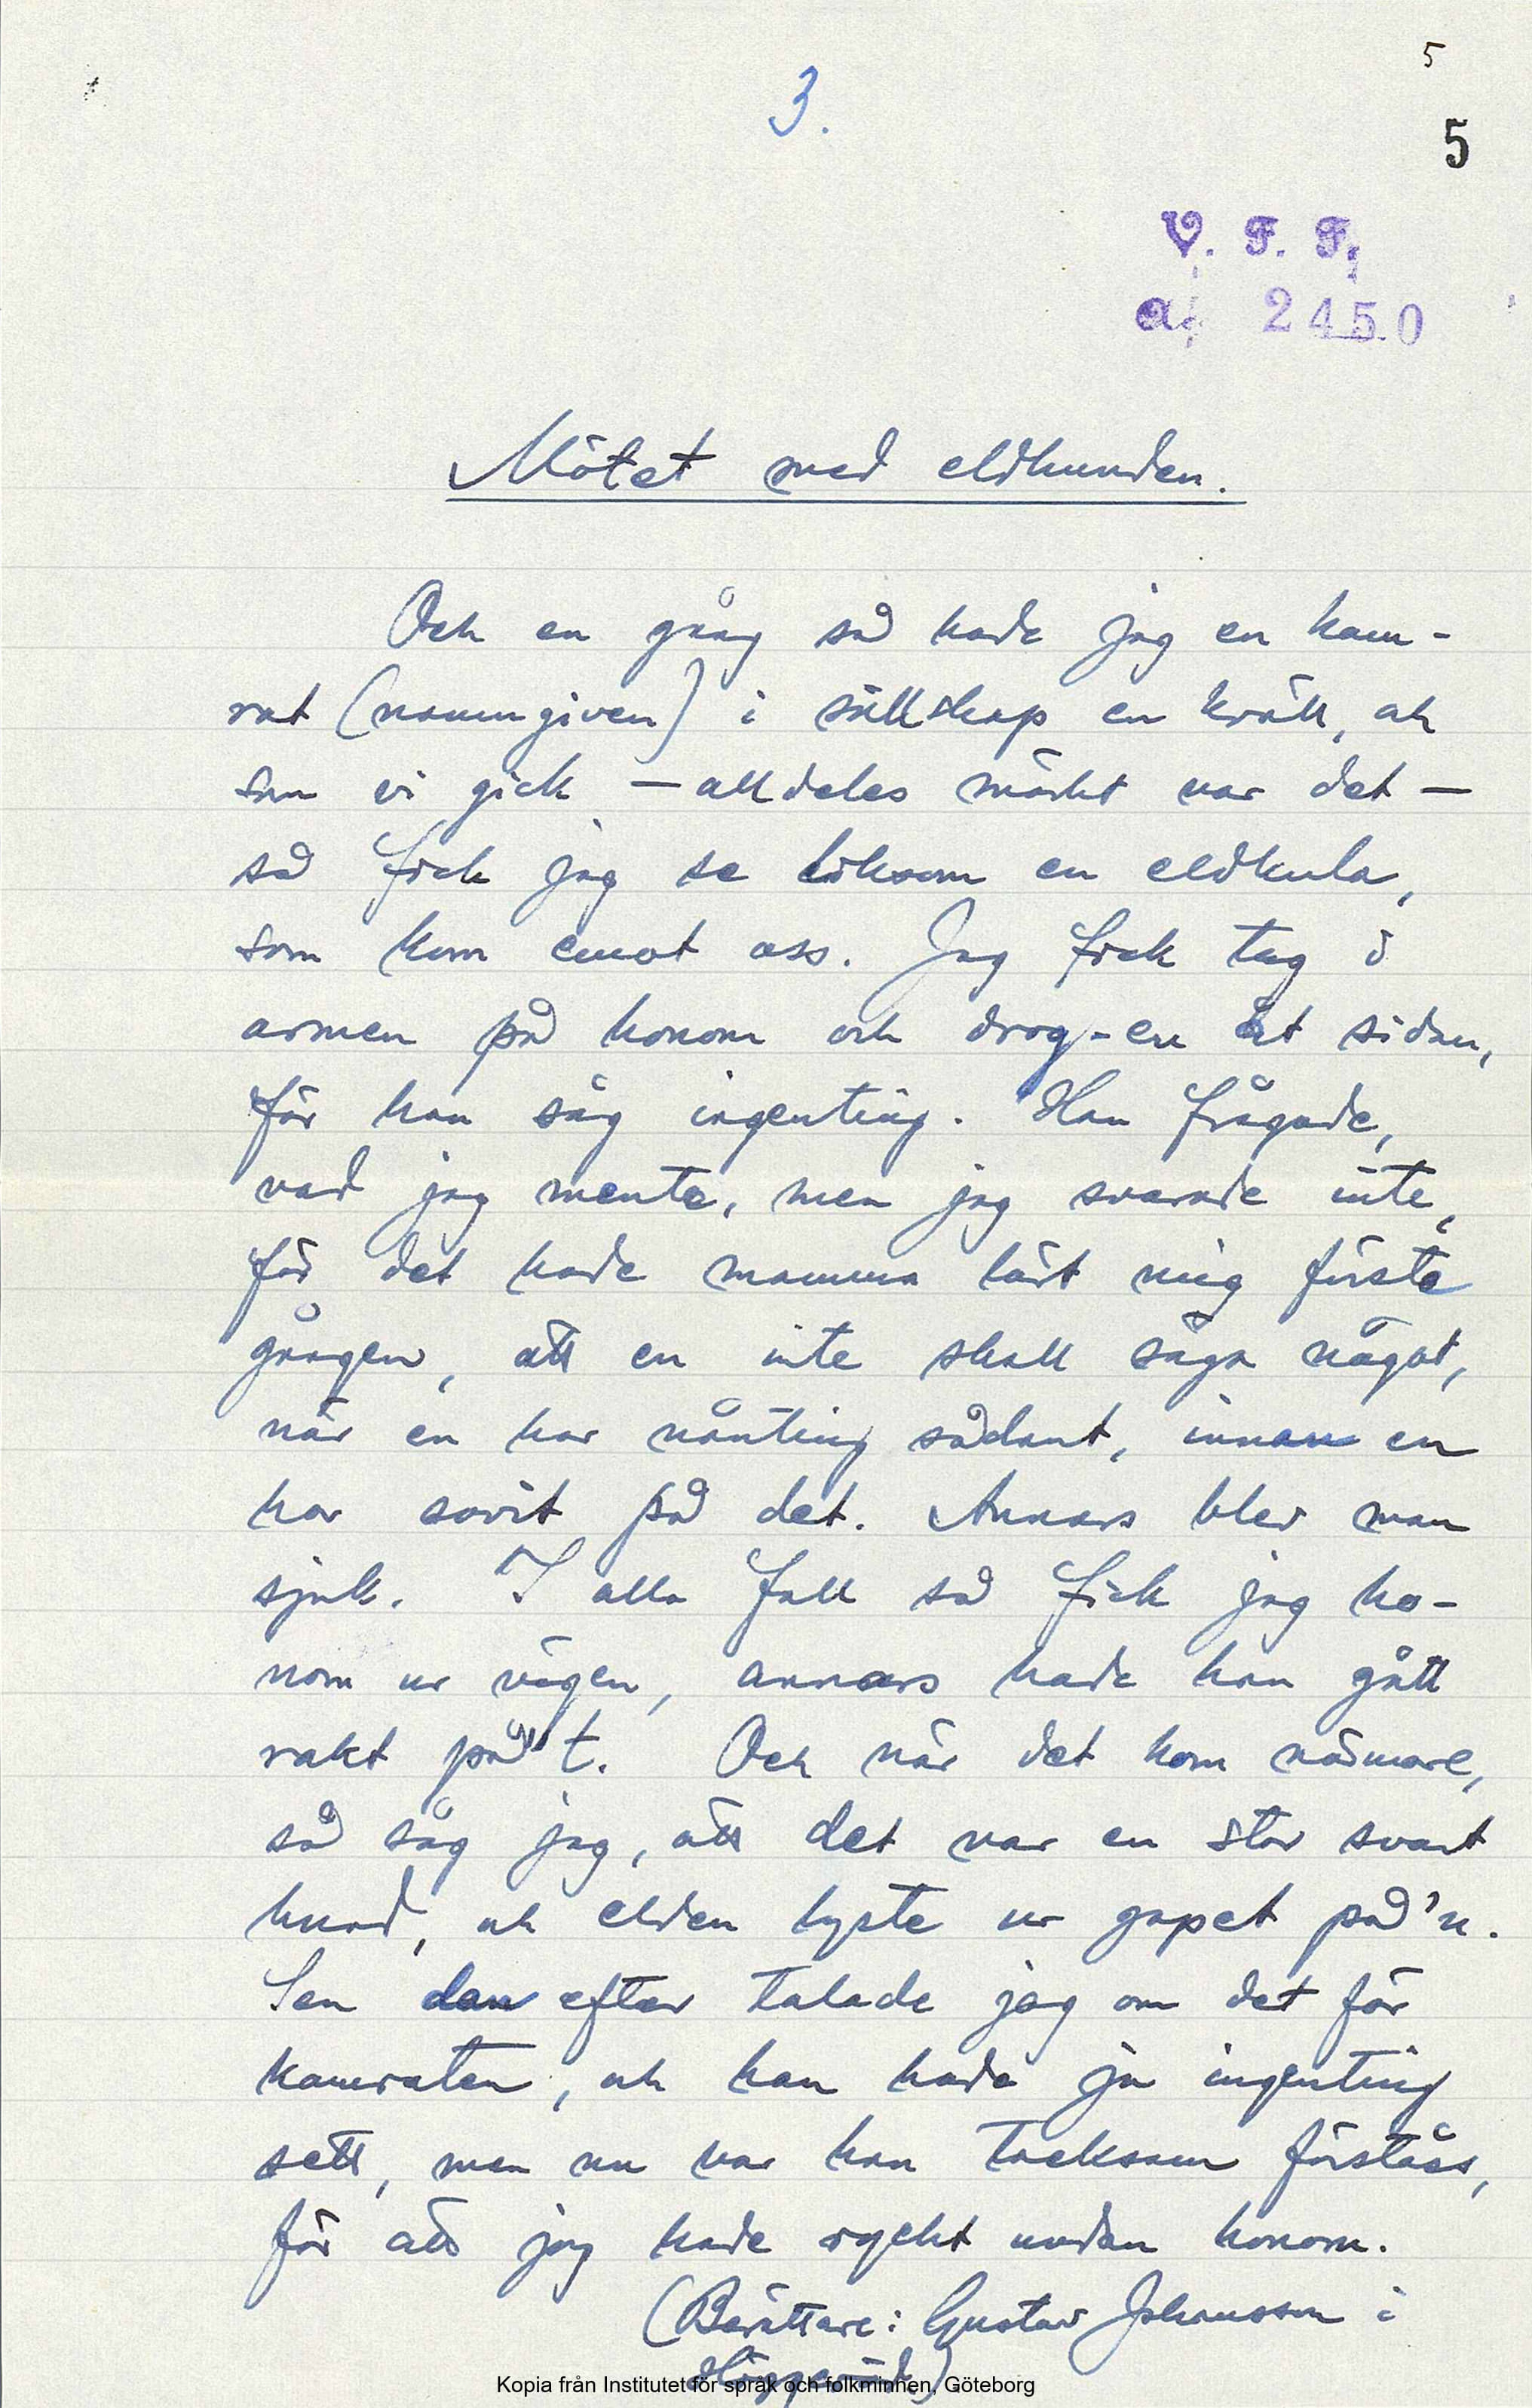 5
3.
5
V. F. F.
a; 2450
Mötet med eldhunden.
Och en gång så hade jag en kam-
rat (namngiven) i sällskap en kväll, och
som vi gick — alldeles mörkt var det —
så fick jag se liksom en eldkula,
som kom emot oss. Jag fick tag i
armen på honom och drog-en åt sidan,
för han såg ingenting. Han frågade,
vad jag mente, men jag svarade inte,
för det hade mamma lärt mig första
gången, att en inte skall säga något,
när en har nånting sådant, innan en
har sovit på det. Annars blev man
sjuk. I alla fall så fick jag ho-
nom ur vägen, annars hade han gått
rakt på't. Och när det kom närmare,
så såg jag, att det var en stor svart
hund, och elden lyste ur gapet på'n.
Sen dan efter talade jag om det för
kamraten, och han hade ju ingenting
sett, men nu var han tacksam förståss,
för att jag hade ryckt undan honom.
(Berättare: Gustav Johansson i
Kopia från Institutet för språk och folkminnen, Göteborg